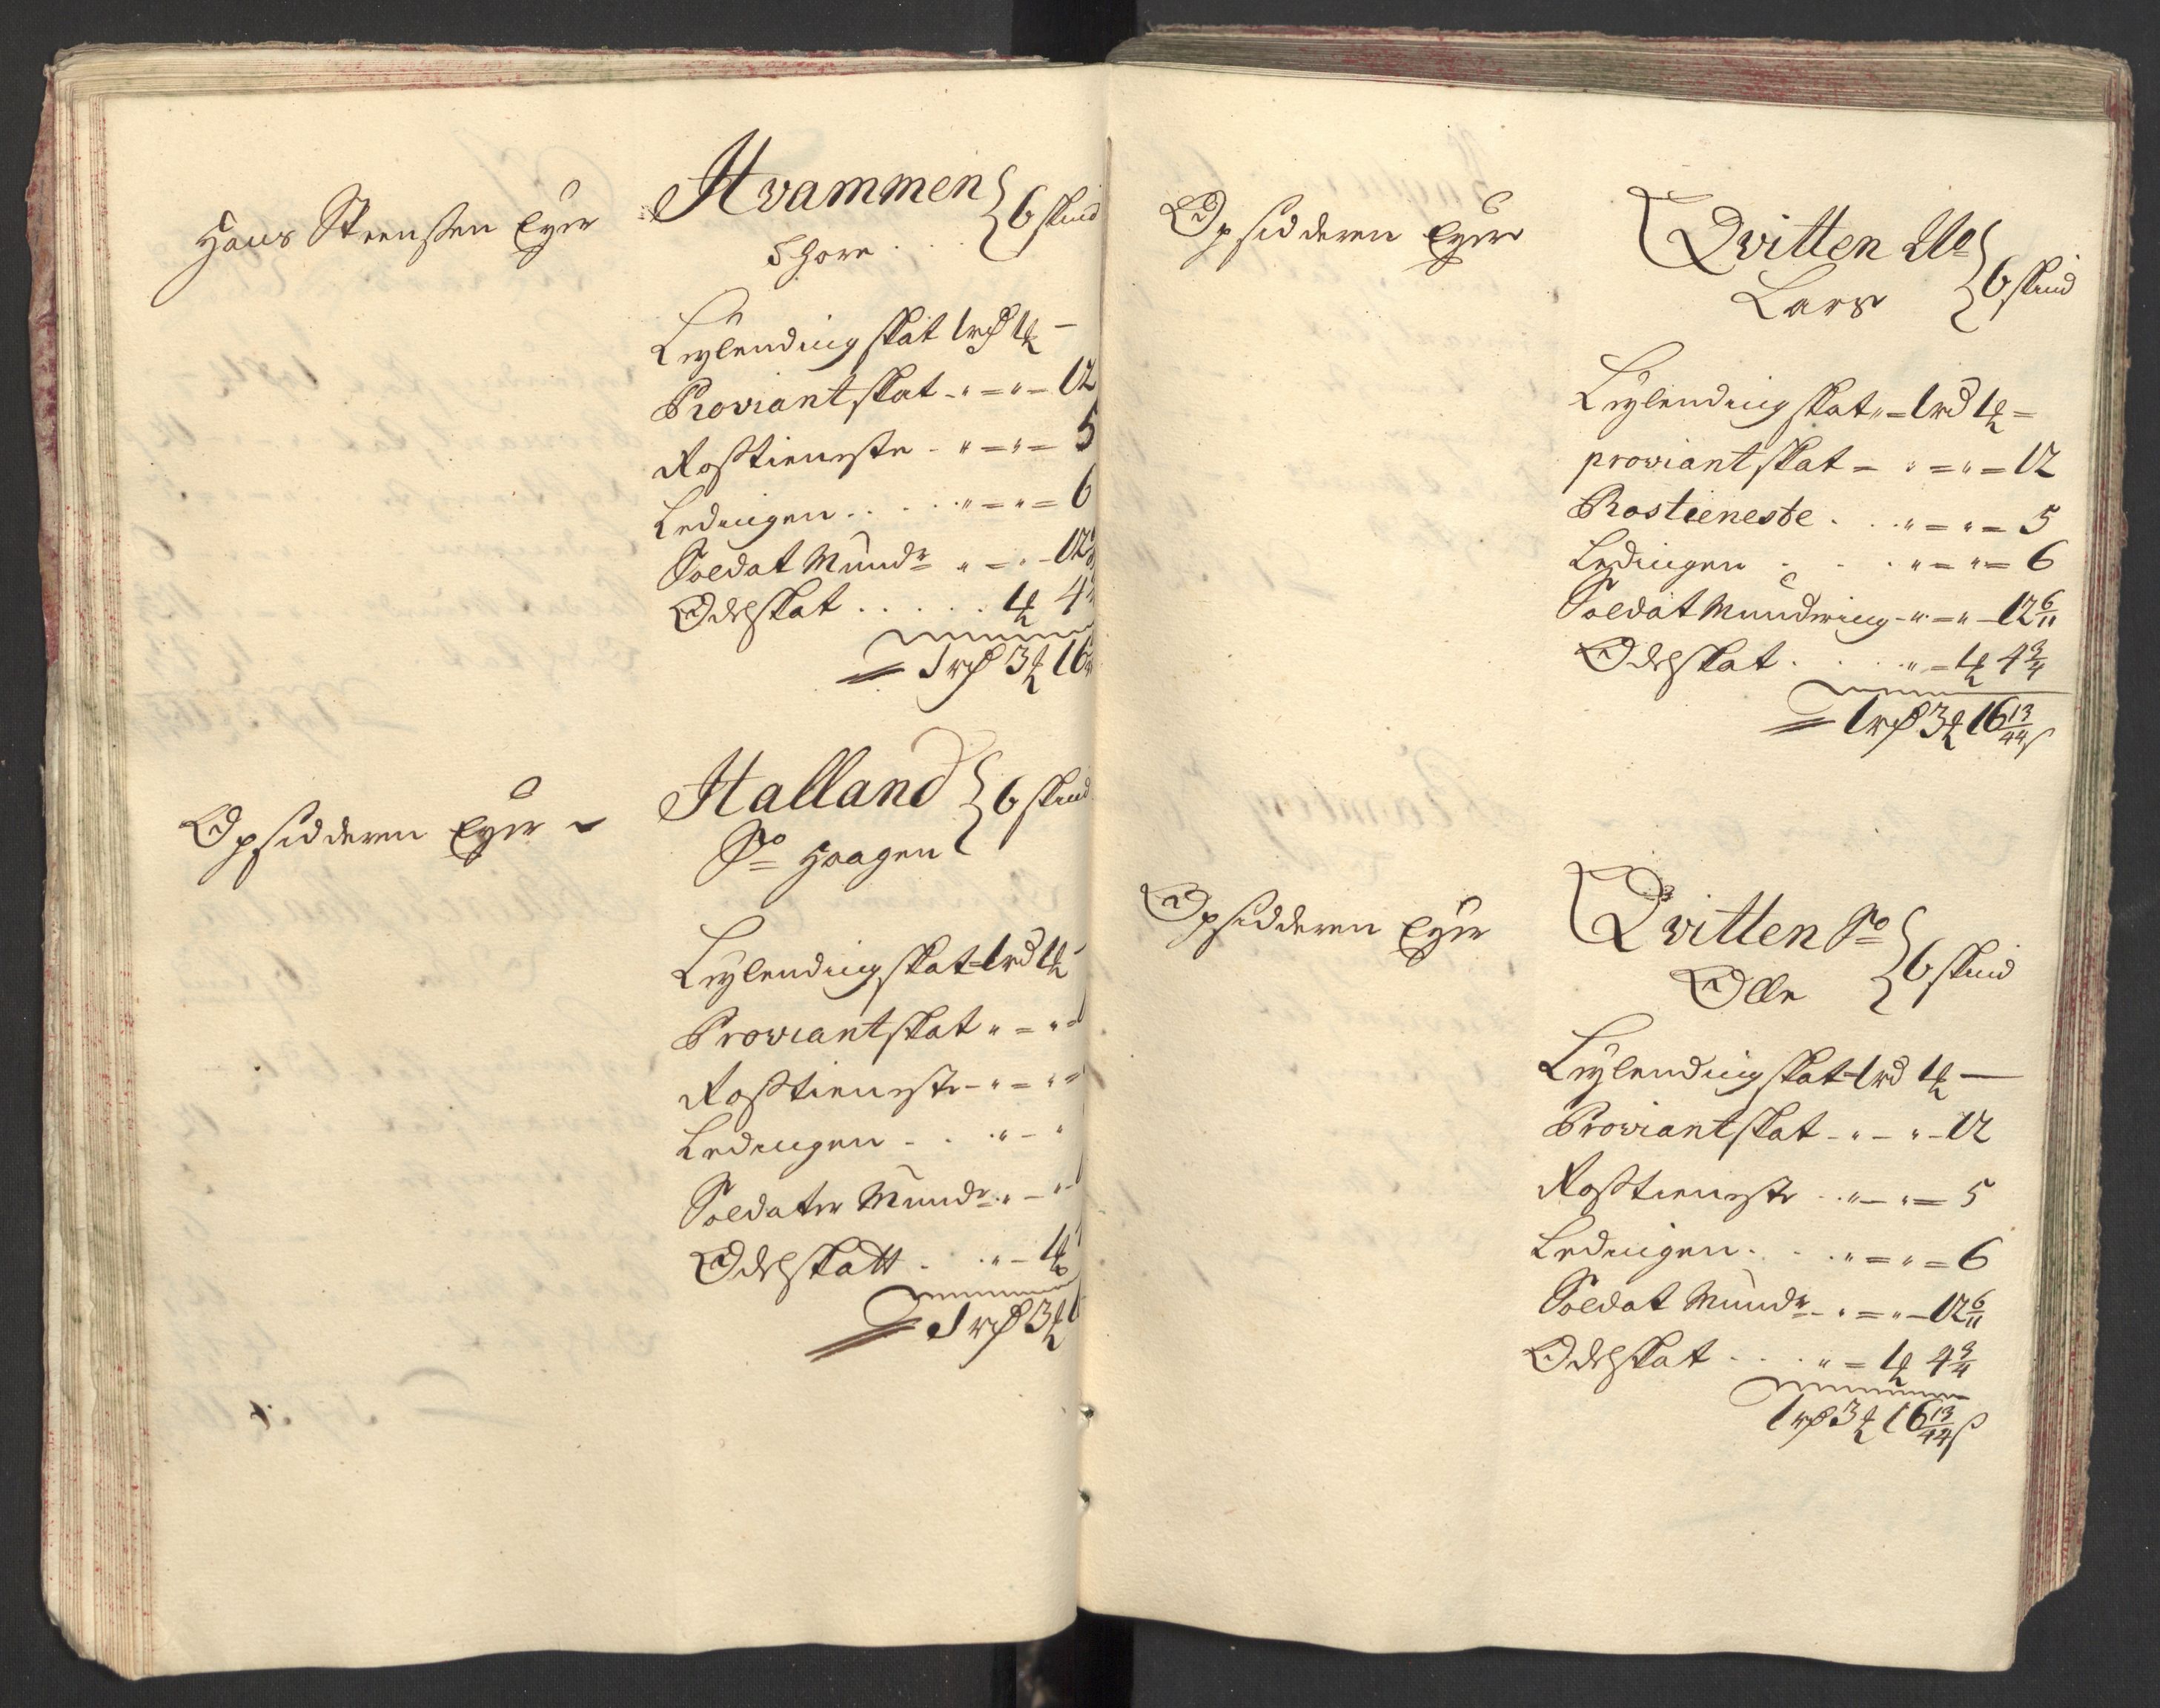 Hans Steensen Eyer
Hvammen
Thore . . . 6 skind
Leylending skat 1 rd 1 ₰ —
Proviant skat - " = " = 12
Rosstieneste - " = " = 5
Ledingen . . . " = " = 6
Soldat Mund: " = " - 12
Odelskat . . . . . 1 ₰ 4
1 rd 3 ₰ 16
Opsidderen Eyer
Halland 6 skind
So Haagen
Leylending skat = 1 rd 1 ₰ -
Proviant skat " = " =
Rosstieneste - " = " =
Ledingen - . . " - "
Soldater Mund: " - " -
Odelskatt . . " - 1 ₰
1 rd 3 ₰
Opsidderen Eyer
Qvitten No 6 skind
Lars
Leylending skat " = 1 rd 1 ₰ =
proviant skat = " = " = 12
Rostieneste . . " = " = 5
Ledingen . . . " = " = 6
Soldat Mundering - " = " - 12 6/11
Odelskat . . . " = 1 ₰ 4 3/4
1 rd 3 ₰ 16 13/44 s
Opsidderen Eyer
Qvitten So 6 skind
Olle
Leylending skat = 1 rd 1 ₰ —
Proviant skat - " - " - 12
Rosstieneste . . " - " = 5
Ledingen . . . " = " = 6
Soldat Mund: - " = " - 12 6/11
Odelskat . . . " = 1 ₰ 4 3/4
1 rd 3 ₰ 16 13/44 s